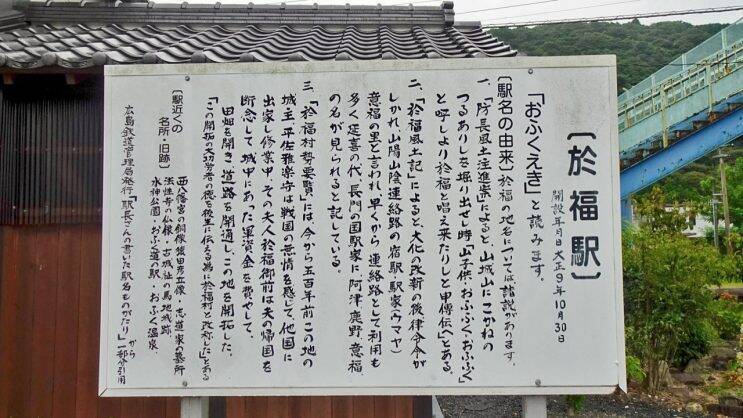 〔於福駅〕
開設年月日大正9年10月30日
「おふくえき」と読みます。
〔駅名の由来〕於福の地名については諸説があります。
一、「防長風土注進案」によると、山城山にこがねの
つるありしを堀り出せし時、山子供・おふふく、おふふく
と呼しより於福と唱え来たりしと申傳伝」とある。
二、「於福風土記」によると、大化の改新の後律令令が
しかれ、山陽山陰連絡路の宿駅、駅家(ウマヤ)
意福の里と言われ、早くから連絡路として利用も
多く、延喜の代、長門の国駅家に、阿津、鹿野、意福、
の名が見られると記している。
三、「於福村勢要覧」には、今から五百年前この地の
城主、平佐雅楽守は戦国の無情を感じて、他国に
出家し修業中、その夫人於福御前は夫の帰国を
断念して、城中にあった軍資金を費やして、
田畑を開き、道路を開通し、この地を開拓した。
「この開拓の功労者の徳を後生に伝える為に於福村と改称した」とある
〔駅近くの
名所・旧跡〕
西八幡宮の銅像、猿田彦立像・志道家の墓所
法性寺の仏像・古城社の馬地城跡
水神公園・おふく道の駅・おふく温泉
広島鉄道管理局発行「駅長さんの書いた駅名ものがたり」から
一部分引用